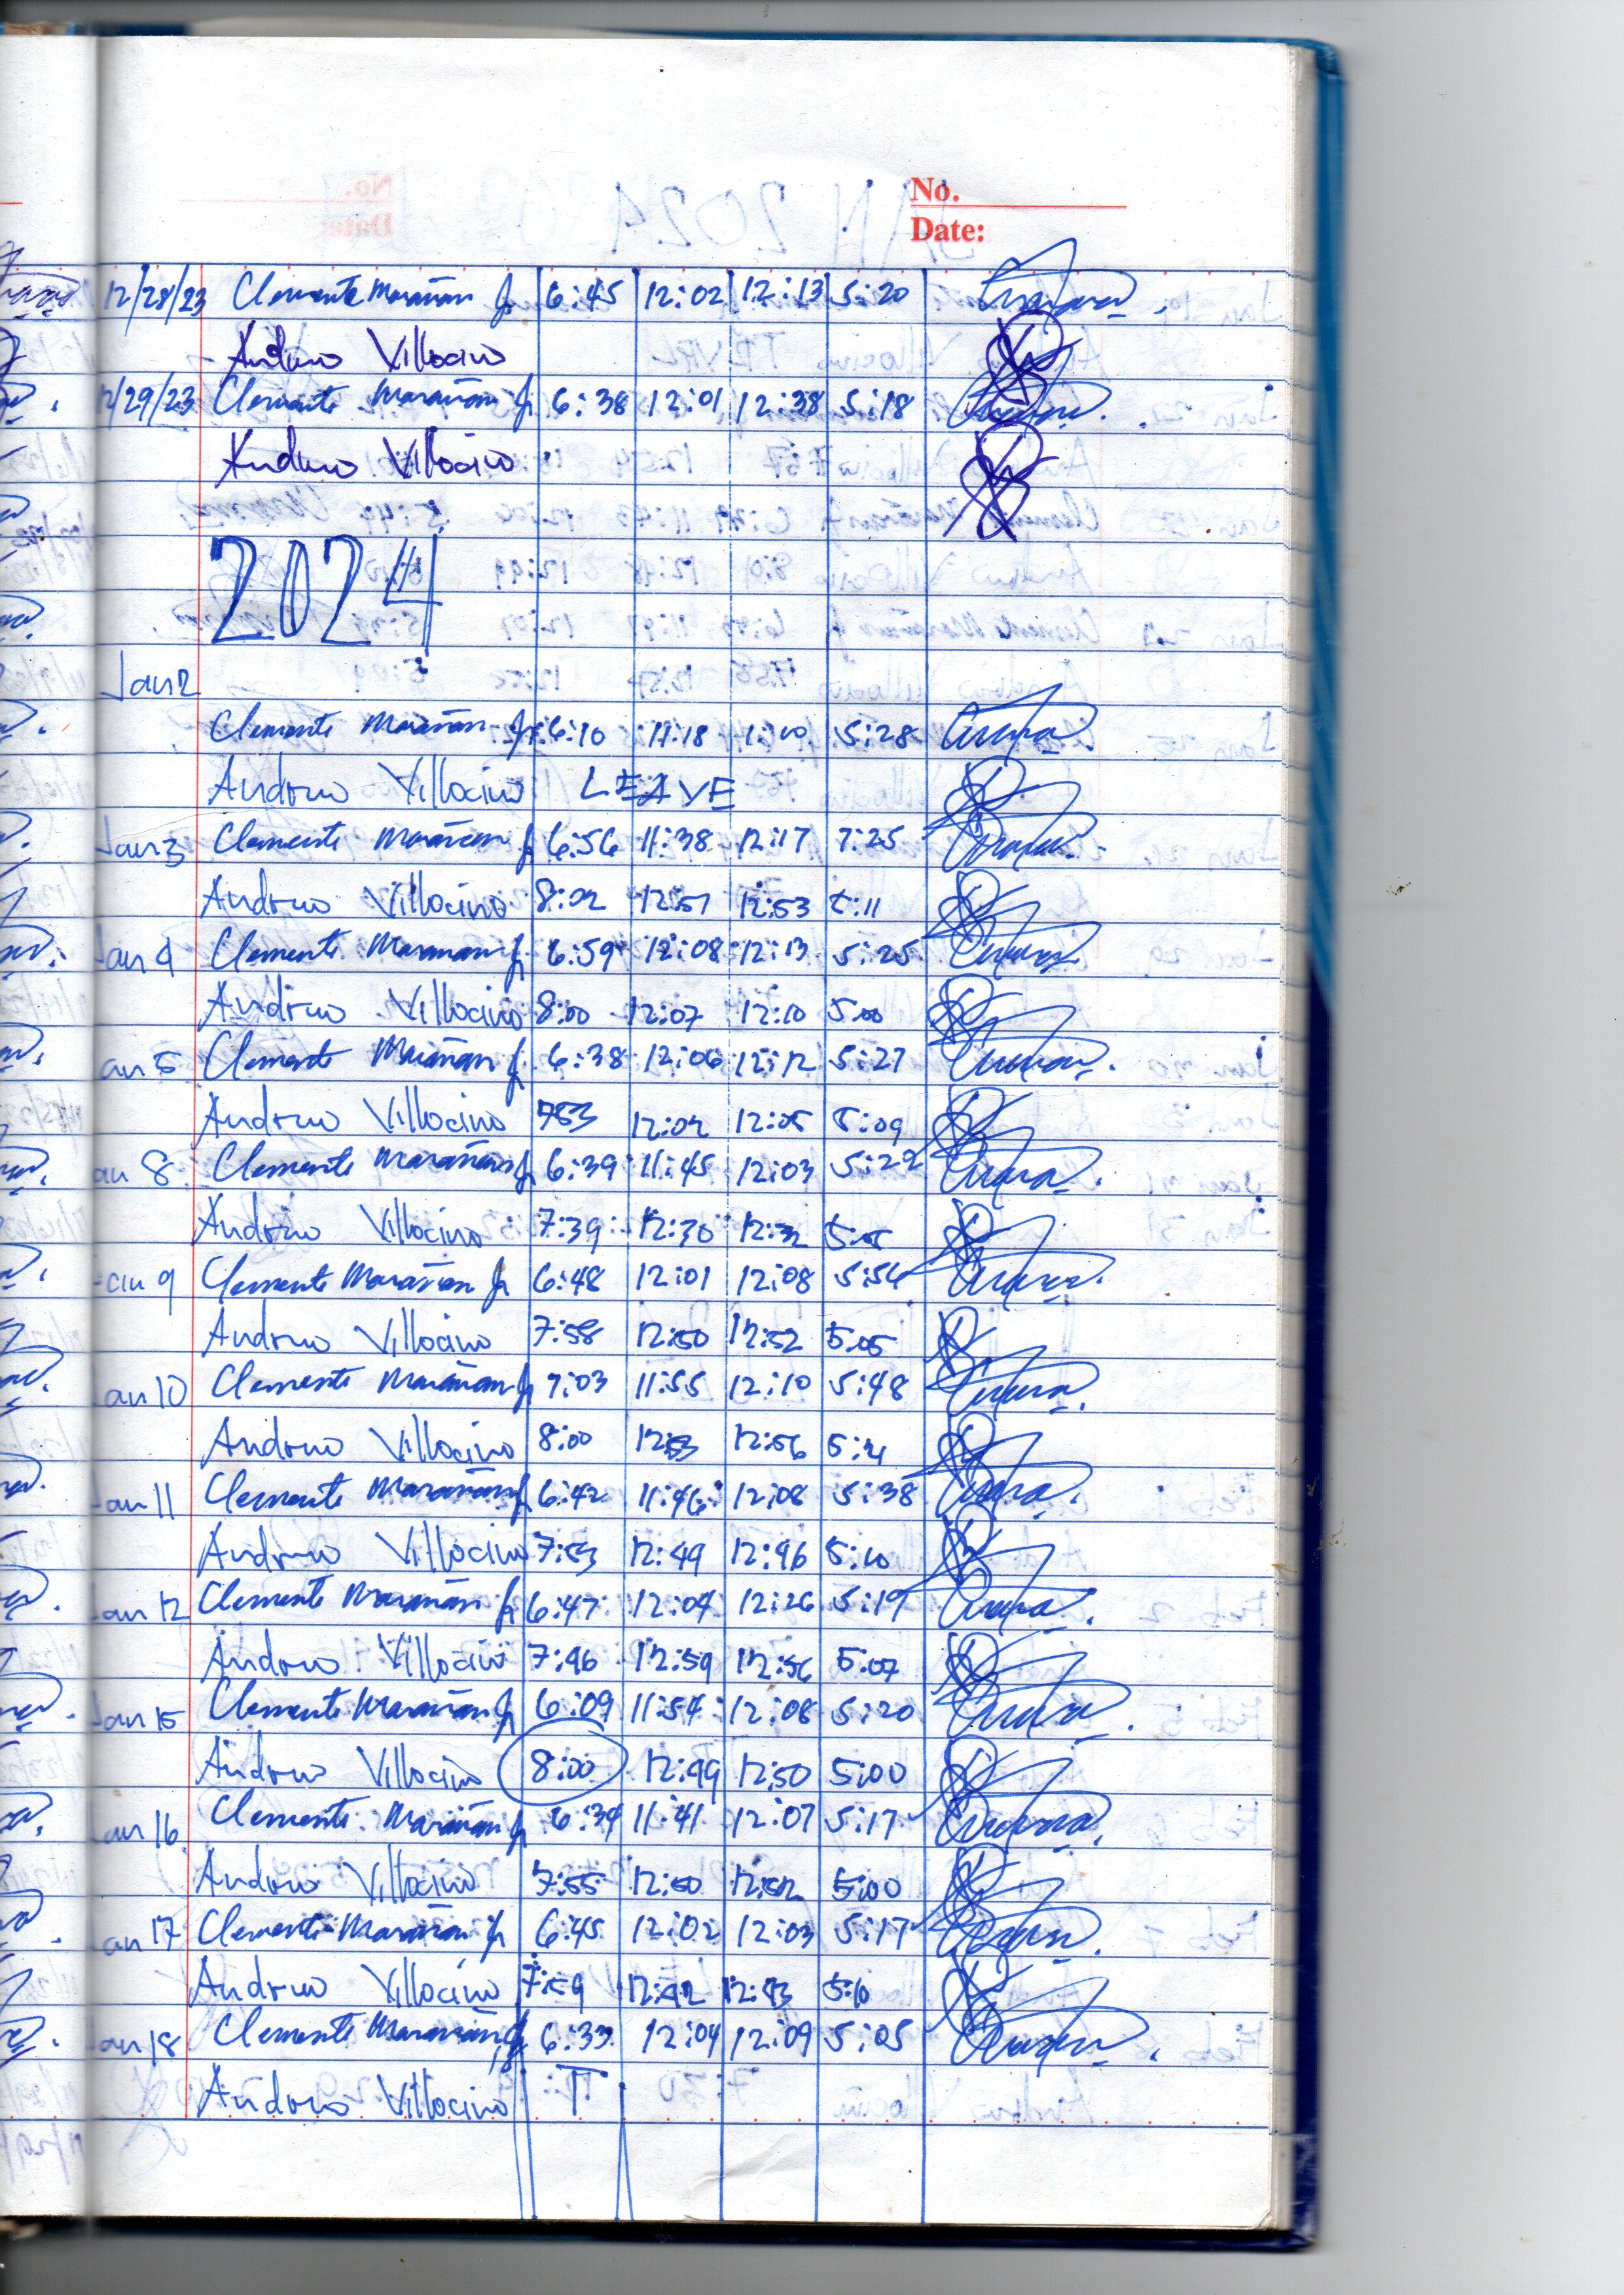 No.
Date:
12/28/23 Clemente Marañan Jr 6:45 12:02 12:13 5:20
Andrino Villocino
12/29/23 Clemente Marañan Jr 6:38 12:01 12:38 5:18
Andrino Villocino
2024
Jan 2
Clemente Marañan Jr 6:10 11:18 1:10 5:28
Andrino Villocino LEAVE
Jan 3 Clemente Marañan Jr 6:56 11:38 12:17 7:25
Andrino Villocino 8:02 12:51 12:53 5:11
Jan 4 Clemente Marañan Jr 6:59 12:08 12:13 5:25
Andrino Villocino 8:00 12:07 12:10 5:00
an 5 Clemente Marañan Jr 6:38 12:06 12:12 5:27
Andrino Villocino 753 12:04 12:05 5:09
an 8 Clemente Marañan Jr 6:39 11:45 12:03 5:22
Andrino Villocino 7:39 12:30 12:32 5:05
an 9 Clemente Marañan Jr 6:48 12:01 12:08 5:54
Andrino Villocino 7:58 12:50 12:52 5:05
Jan 10 Clemente Marañan Jr 7:03 11:55 12:10 5:48
Andrino Villocino 8:00 12:53 12:56 5:21
Jan 11 Clemente Marañan Jr 6:42 11:46 12:08 5:38
Andrino Villocino 7:53 12:49 12:46 5:10
Jan 12 Clemente Marañan Jr 6:47 12:04 12:26 5:19
Andrino Villocino 7:46 12:59 12:56 5:07
Jan 15 Clemente Marañan Jr 6:09 11:54 12:08 5:20
Andrino Villocino 8:00 12:49 12:50 5:00
Jan 16 Clemente Marañan Jr 6:34 11:41 12:07 5:17
Andrino Villocino 7:55 12:50 12:52 5:00
an 17 Clemente Marañan Jr 6:45 12:02 12:03 5:17
Andrino Villocino 7:59 12:42 12:43 5:10
Jan 18 Clemente Marañan Jr 6:33 12:04 12:09 5:05
Andrino Villocino T